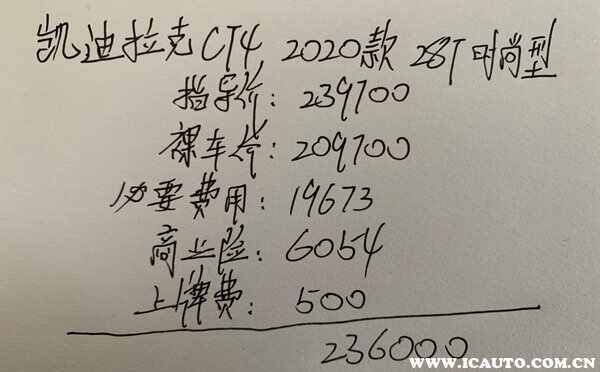 凯迪拉克CT4 2020款 28T时尚型
指导价：239700
裸车价：209700
必要费用：19673
商业险：6054
上牌费：500
236000
WWW.ICAUTO.COM.CN